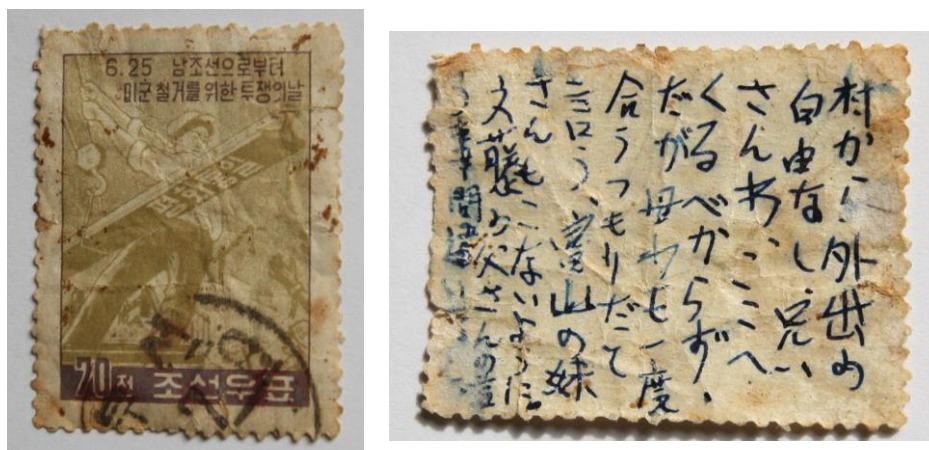 6.25 남조선으로부터
미군 철거를 위한 투쟁의 날
평화통일
10전 조선우표
村から外出の
自由なし、兄い
さんわ、ここへ
くるべからず、
だが母わも一度
合うつもりだて
言う、富山の妹
さんもこないように。
父さんの